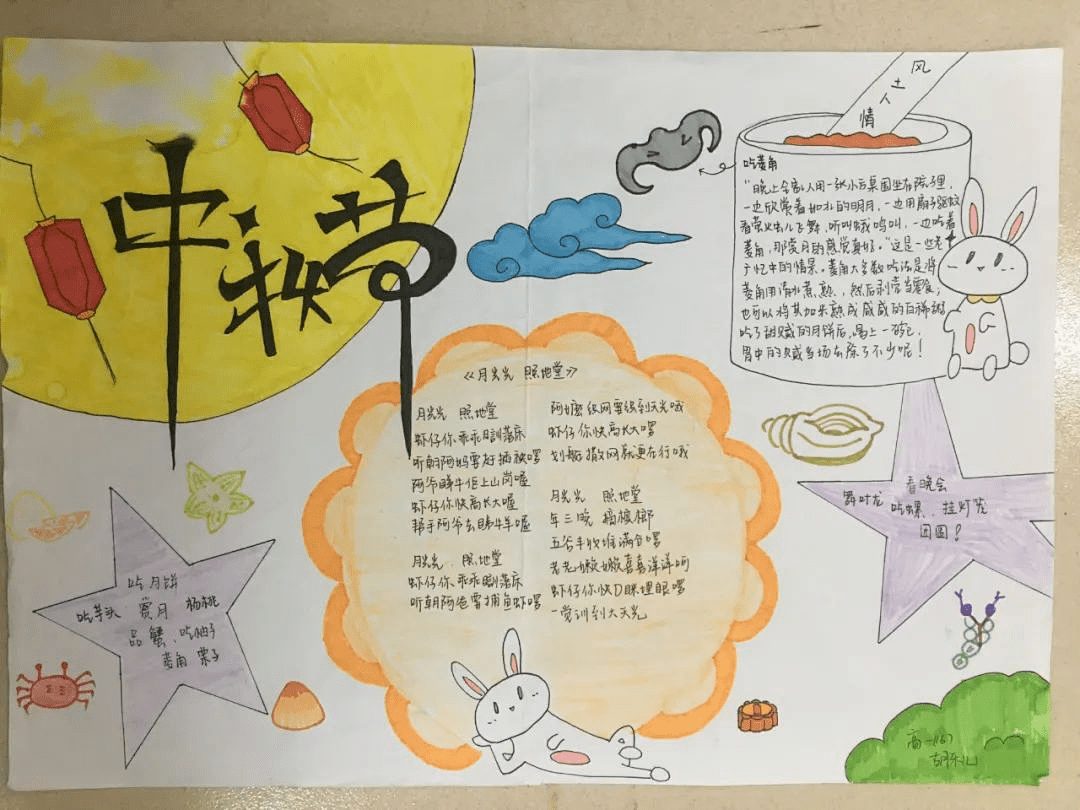 中秋节
风土人情
吃菱角
“晚上全家人用一张小台桌围坐在院子里，
一边欣赏着如水的明月，一边用扇子驱蚊
看萤火虫儿飞舞，听叫蝈鸣叫，一边吃着
菱角，那赏月的感觉真好。”这是一些老
广忆中的情景。菱角大多数吃法是将
菱角用清水煮熟，然后剥壳当零食；
也可以将其加米熟成咸咸的白稀粥
吃了甜腻的月饼后，喝上一碗它，
胃中的腻当场去除了不少呢！
《月光光 照地堂》
月光光 照地堂
虾仔你乖乖瞓落床
听朝阿妈要赶插秧啰
阿爷睇牛佢上山岗喔
虾仔你快高长大喔
帮手阿爷去睇牛羊喔
月光光 照地堂
虾仔你乖乖瞓落床
听朝阿爸要捕鱼虾啰
阿嬷织网要织到天光哦
虾仔你快高长大啰
划艇撒网就更在行哦
月光光 照地堂
年三晚 摘槟榔
五谷丰收堆满仓啰
老老嫩嫩喜喜洋洋啊
虾仔你快D眯埋眼啰
一觉训到大天光
吃月饼
吃芋头 赏月 杨桃
品蟹、吃柚子
菱角 栗子
看晚会
舞叶龙 吃螺、挂灯笼
团圆！
高一